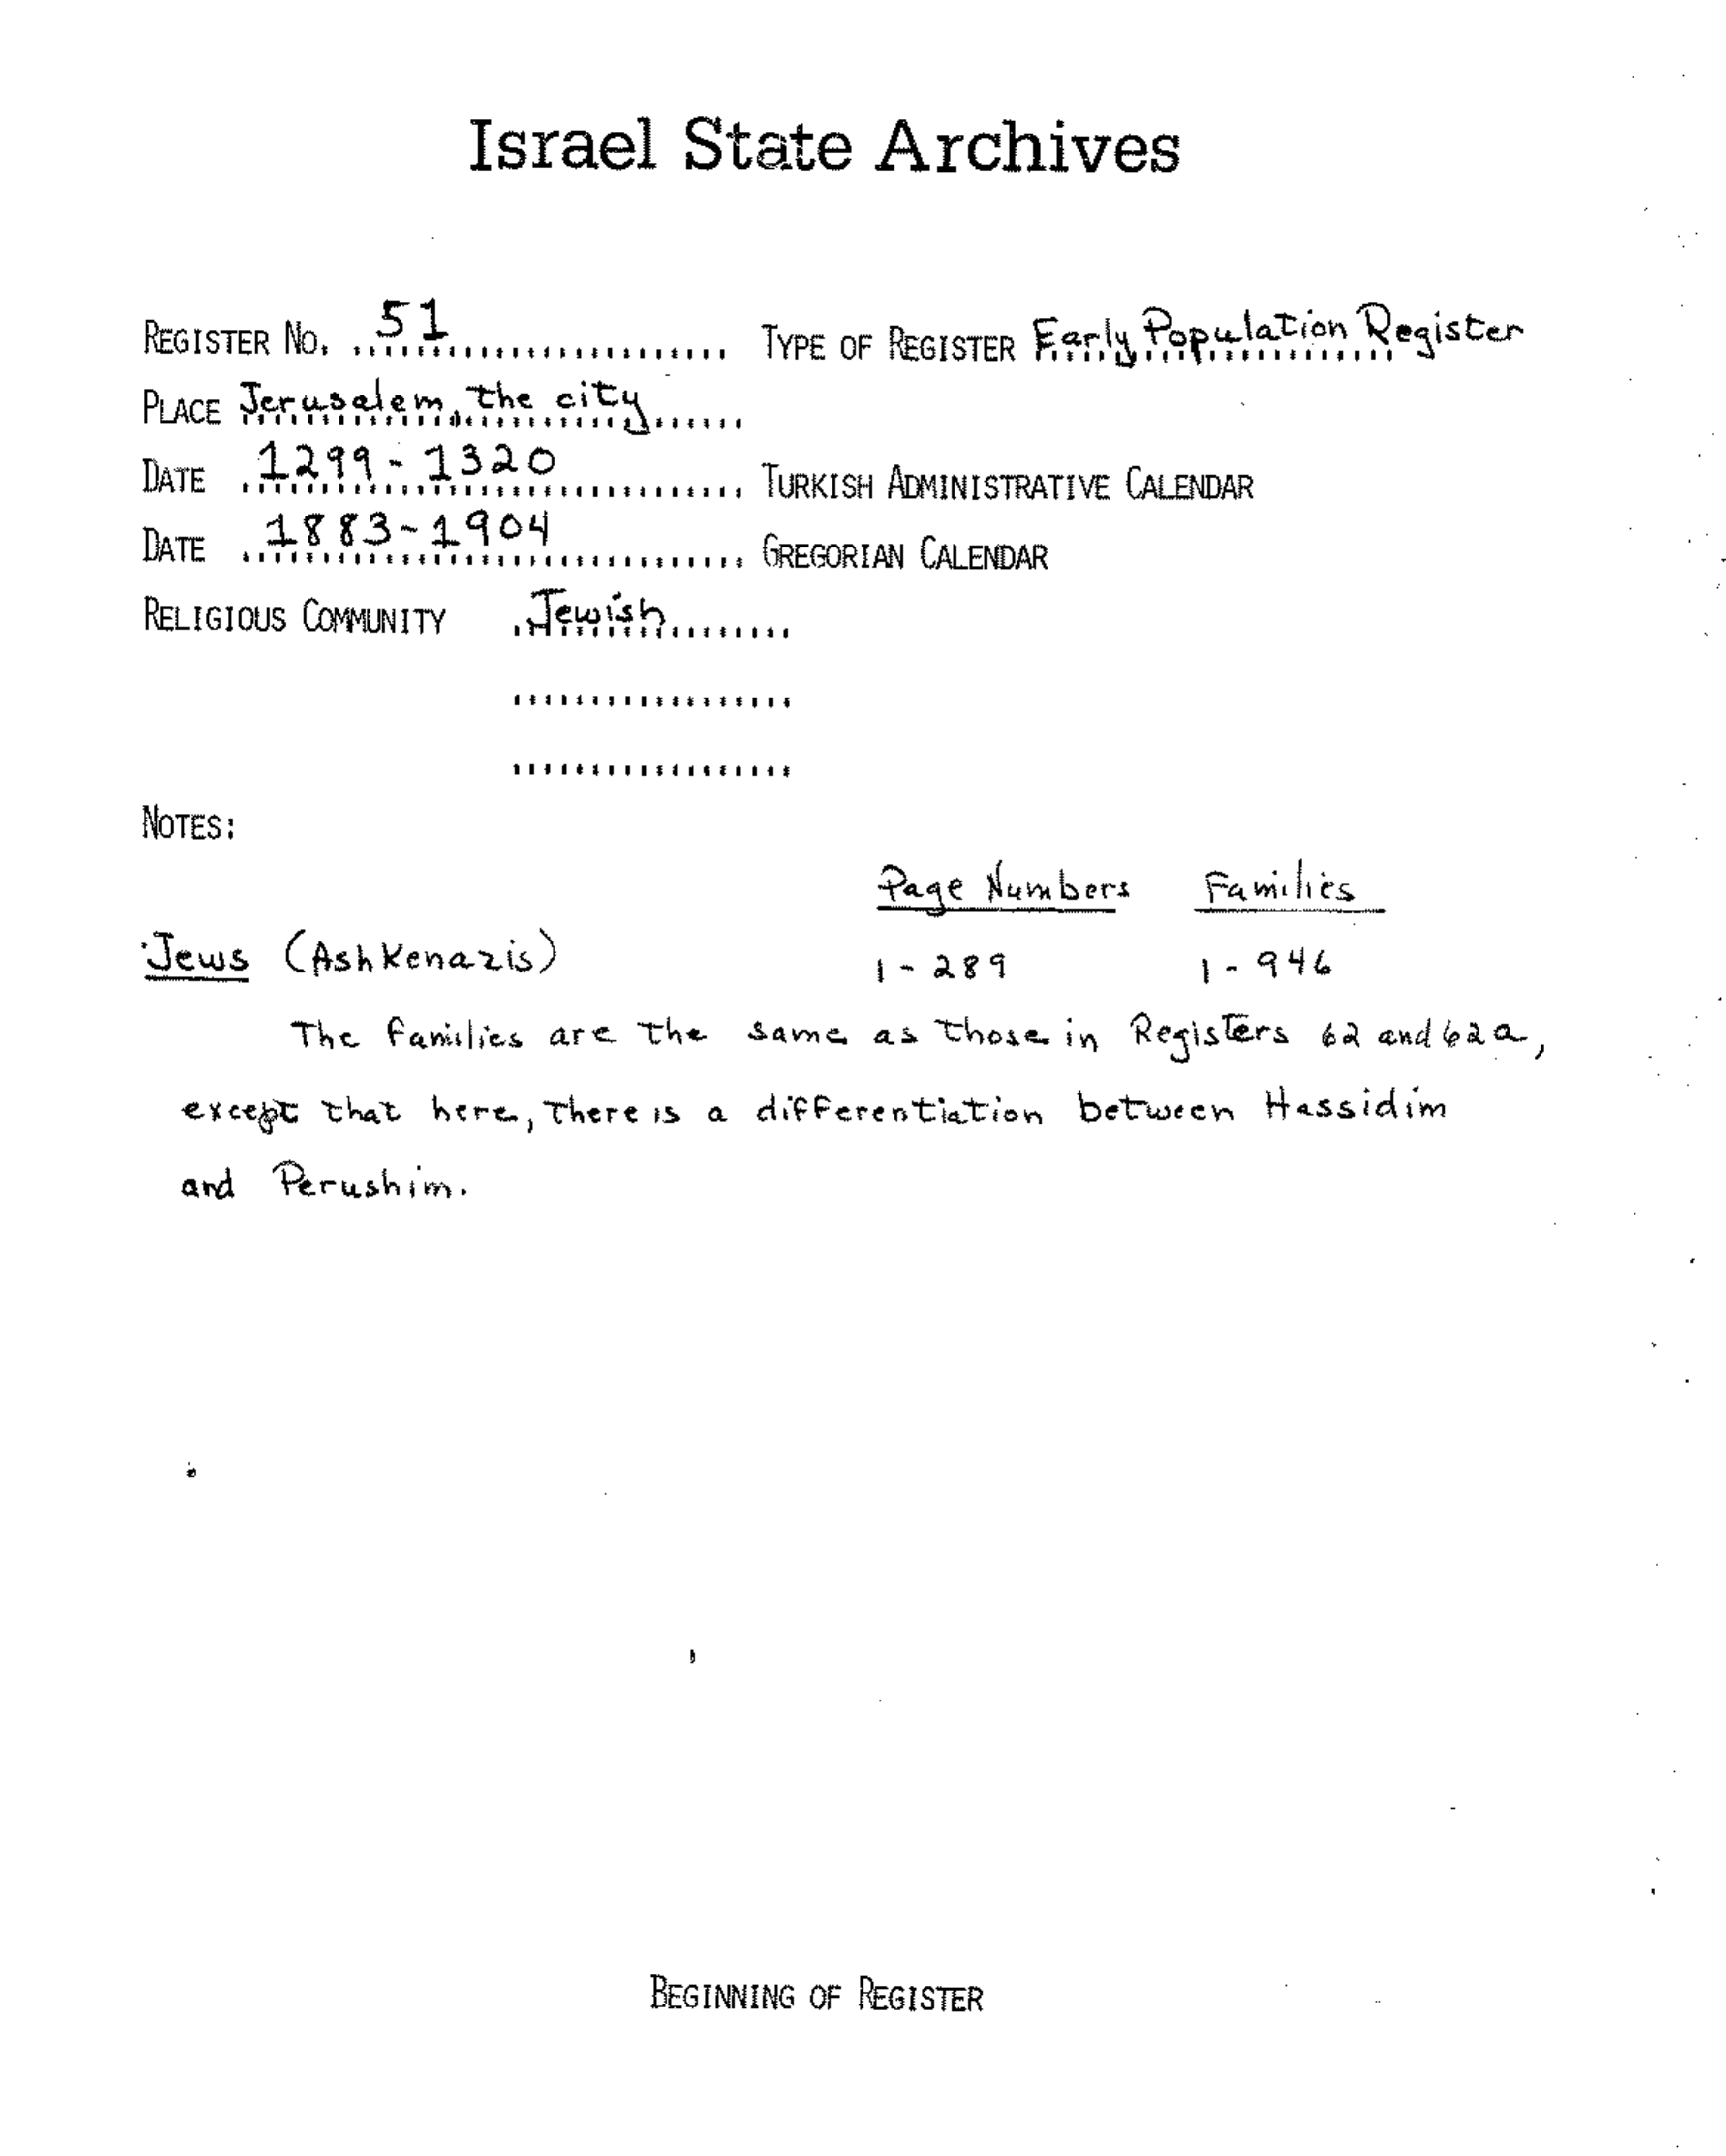 Israel State Archives
REGISTER NO. 51 TYPE OF REGISTER Early Population Register
PLACE Jerusalem, the city
DATE 1299-1320 TURKISH ADMINISTRATIVE CALENDAR
DATE 1883-1904 GREGORIAN CALENDAR
RELIGIOUS COMMUNITY Jewish
NOTES:
Page Numbers Families
Jews (Ashkenazis) 1-289 1-946
The families are the same as those in Registers 62 and 62a,
except that here, there is a differentiation between Hassidim
and Perushim.
BEGINNING OF REGISTER